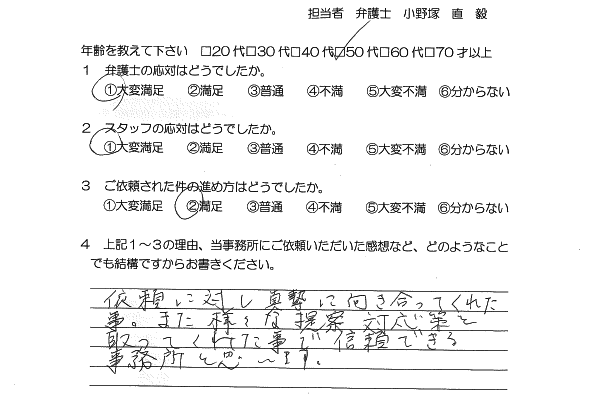 担当者 弁護士 小野塚 直 毅
年齢を教えて下さい □20代□30代□40代□50代□60代□70才以上
1 弁護士の応対はどうでしたか。
①大変満足 ②満足 ③普通 ④不満 ⑤大変不満 ⑥分からない
2 スタッフの応対はどうでしたか。
①大変満足 ②満足 ③普通 ④不満 ⑤大変不満 ⑥分からない
3 ご依頼された件の進め方はどうでしたか。
①大変満足 ②満足 ③普通 ④不満 ⑤大変不満 ⑥分からない
4 上記1~3の理由、当事務所にご依頼いただいた感想など、どのようなこと
でも結構ですからお書きください。
依頼に対し真摯に向き合ってくれた
事。また様々な提案 対応策を
取ってくれた事で信頼できる
事務所と思います。